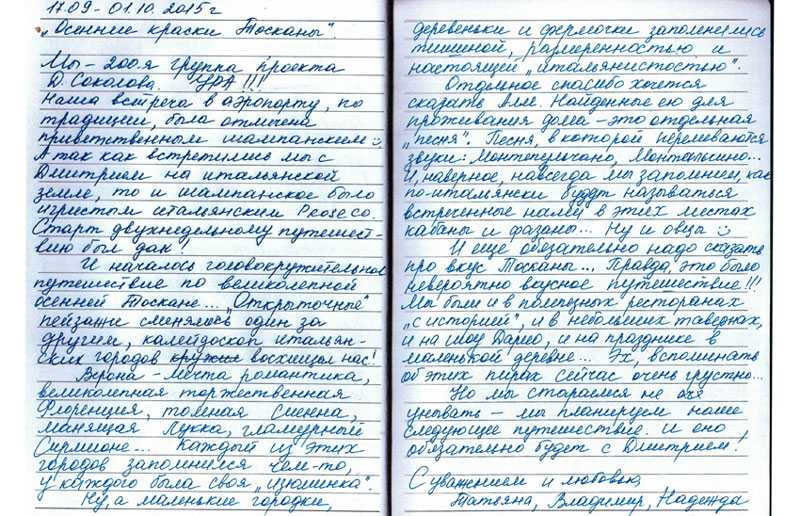 17.09 – 01.10.2015 г
„Осенние краски Тосканы".
Мы – 200-я группа проекта
Д. Соколова. УРА !!!
Наша встреча в аэропорту, по
традиции, была отмечена
приветственным шампанским
А так как встретились мы с
Дмитрием на итальянской
земле, то и шампанское было
игристым итальянским Proseco.
Старт двухнедельному путешест-
вию был дан!
И началось головокружительное
путешествие по великолепной
осенней Тоскане... "Открыточные"
пейзажи сменялись один за
другим, калейдоскоп итальян-
ских городов восхищал нас!
Верона – мечта романтика,
великолепная торжественная
Флоренция, томная Сиенна,
манящая Лукка, гламурный
Сирмионе... Каждый из этих
городов запомнился чем-то,
у каждого была своя „изюминка".
Ну, а маленькие городки,
деревеньки и фермочки заполнились
тишиной, размеренностью и
настоящей „итальянистостью".
Отдельное спасибо хочется
сказать Алле. Найденные ею для
проживания дома – это отдельная
„песня". Песня, в которой переливаются
звуки: Монтепульчано, Монтальчино...
И, наверное, навсегда мы запомним, как
по-итальянски будут называться
встреченные нами в этих местах
кабаны и фазаны... Ну и овцы
И еще обязательно надо сказать
про вкус Тосканы... Правда, это было
невероятно вкусное путешествие!!!
Мы были и в помпезных ресторанах
„с историей", и в небольших тавернах,
и на шоу Дарио, и на празднике в
маленькой деревне... Эх, вспоминать
об этих пирах сейчас очень грустно...
Но мы стараемся не
унывать – мы планируем наше
следующее путешествие. и оно,
обязательно будет с Дмитрием!
С уважением и любовью,
Татьяна, Владимир, Надежда